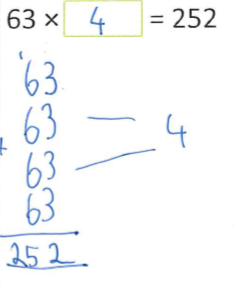 63 × 4 = 252
63
63 — 4
+ 63
63
252